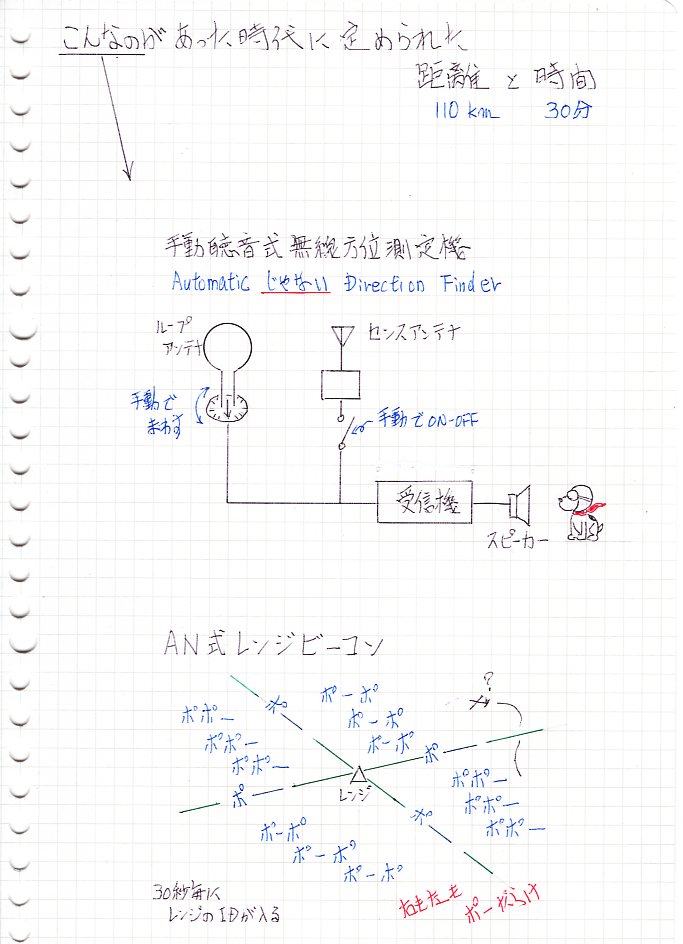 こんなのがあった時代に定められた
距離と時間
110 km 30分
手動聴音式無線方位測定機
Automatic じゃない Direction Finder
ループ
アンテナ
センスアンテナ
手動で
まわす
手動でON-OFF
受信機
スピーカー
AN式レンジビーコン
?
ポーポ
ポーポ
ポーポ
ポポー
ポポー
ポポー
ポ
ポ
レンジ
ポポー
ポポー
ポポー
ポーポ
ポーポ
ポーポ
30秒毎に
レンジのIDが入る
右も左も
ポーだらけ